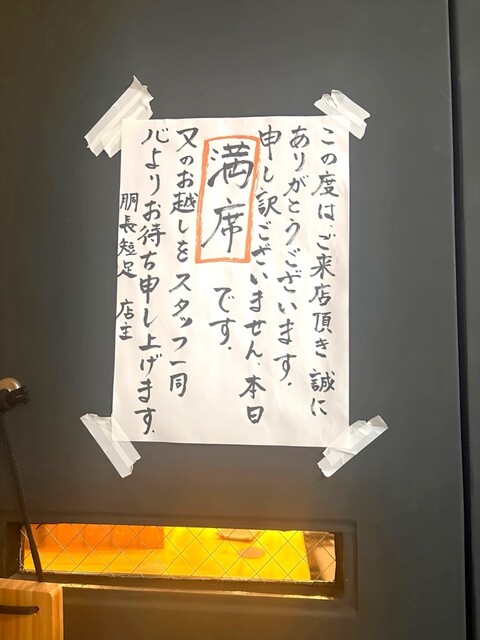 この度は、ご来店頂き誠に
ありがとうございます.
申し訳ございません、本日
満席です.
又のお越しをスタッフ一同
心よりお待ち申し上げます.
胴長短足 店主